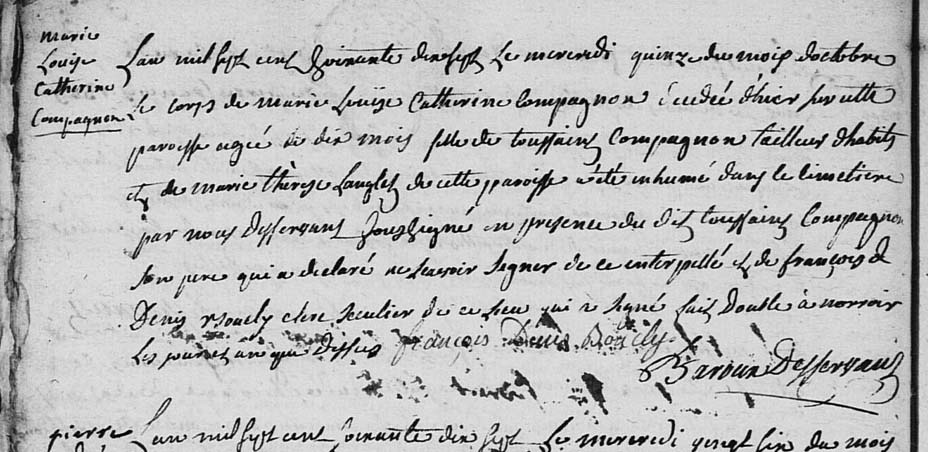 marie
Louise
Catherine
Compagnon
Lan mil sept cent soixante dix sept le mercredi quinze du mois doctobre
Le corps de marie Louise Catherine Compagnon décédée d'hier sur cette
paroisse agée de dix mois fille de toussaint Compagnon tailleur d'habits
et de marie thèrese Langlet de cette paroisse a été inhumé dans le Cimetière
par nous desservant soussigné en presence du dit toussaint Compagnon
son pere qui a declaré ne scavoir signer de ce interpellé et de françois
Denis clerc seculier de ce lieu qui a signé fait double à norroir
Les jour et an que dessus françois Denis
Baroux Desservant
pierre
Lan mil sept cent soixante dix sept le mercredi vingt six du mois